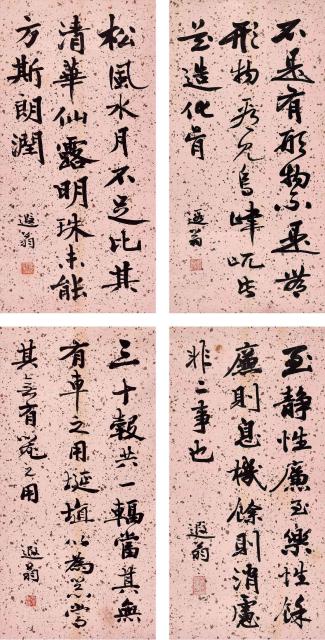 不是有形物不是無
形物
造化
遐翁
松風水月不足比其
清華仙露明珠未能
方斯朗潤
遐翁
至靜性廉至樂性餘
廉則息機餘則消慮
非二事也
遐翁
三十轂共一輻當其無
有車之用埏埴以為器當
其無有器之用
遐翁